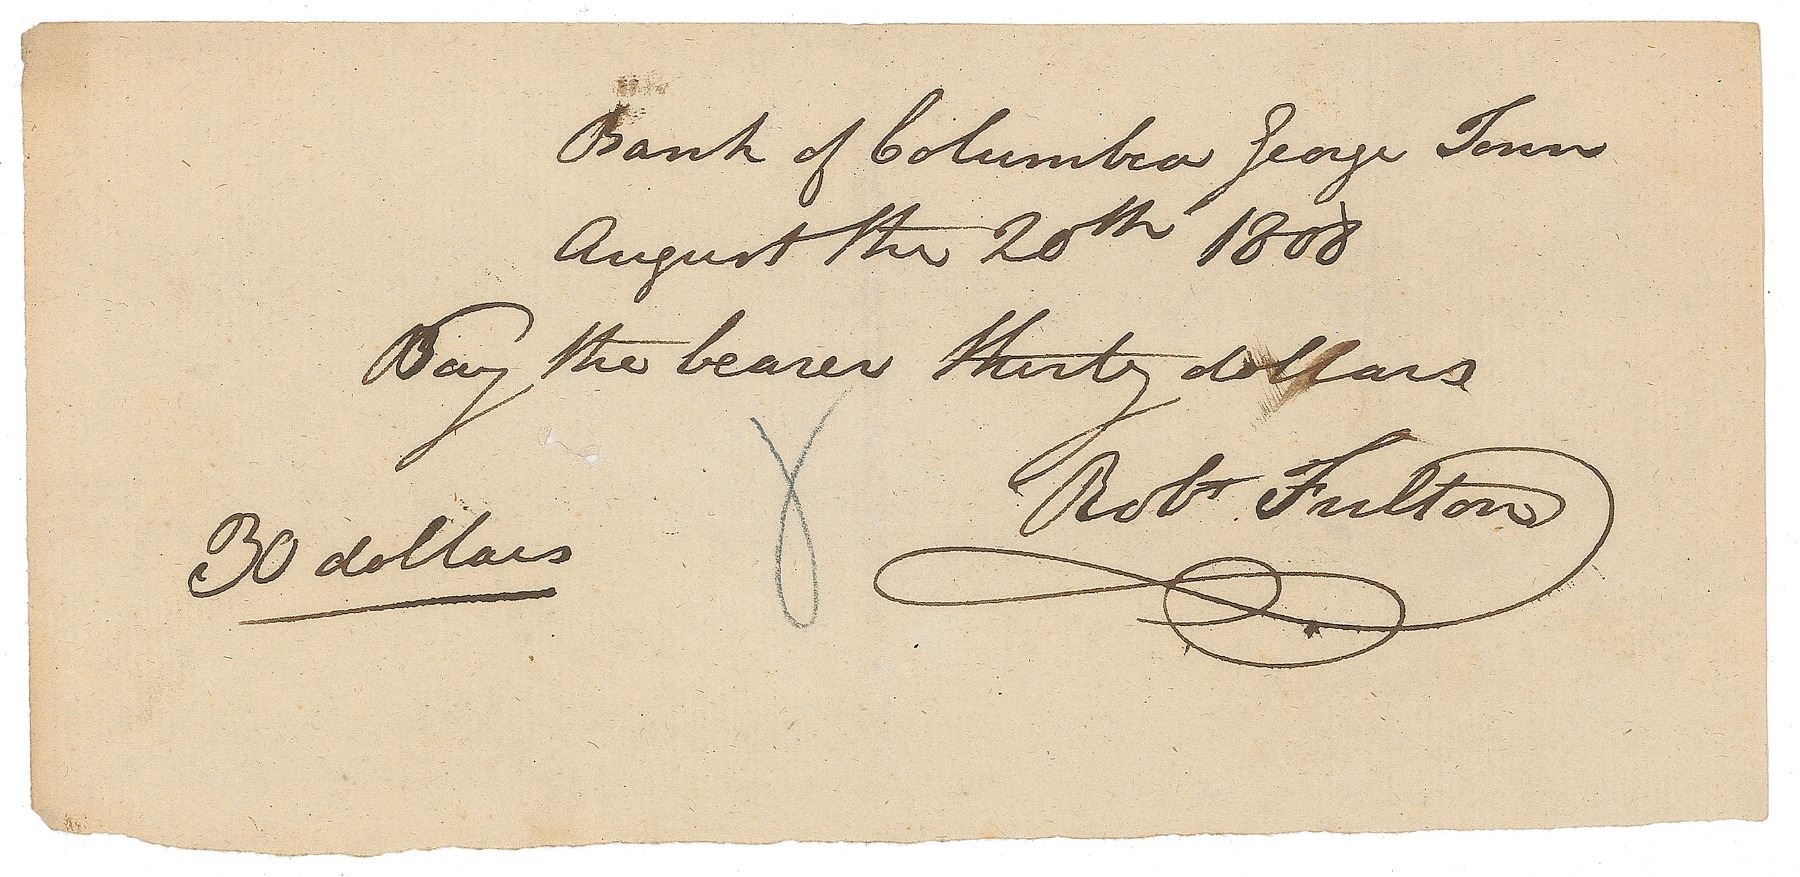 Bank of Columbia George Town
August the 20th 1808
Pay the bearer thirty dollars
Robt Fulton
30 dollars